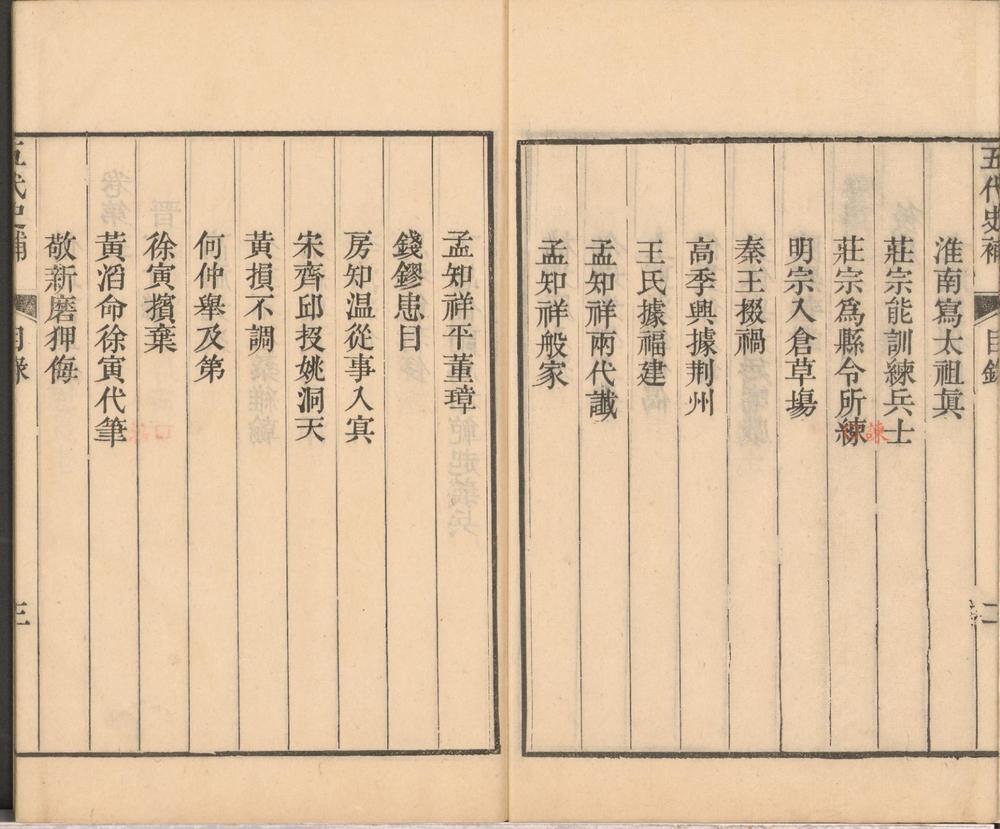 五代史補 目錄 二
淮南寫太祖眞
莊宗能訓練兵士
莊宗爲縣令所練
諫
明宗入倉草場
秦王掇禍
高季興據荆州
王氏據福建
孟知祥兩代讖
孟知祥般家
孟知祥平董璋
錢鏐患目
房知温從事入㝠
宋齊邱投姚洞天
黃損不調
何仲舉及第
徐寅擯棄
黃滔命徐寅代筆
敬新磨狎侮
五代史補 目錄 三